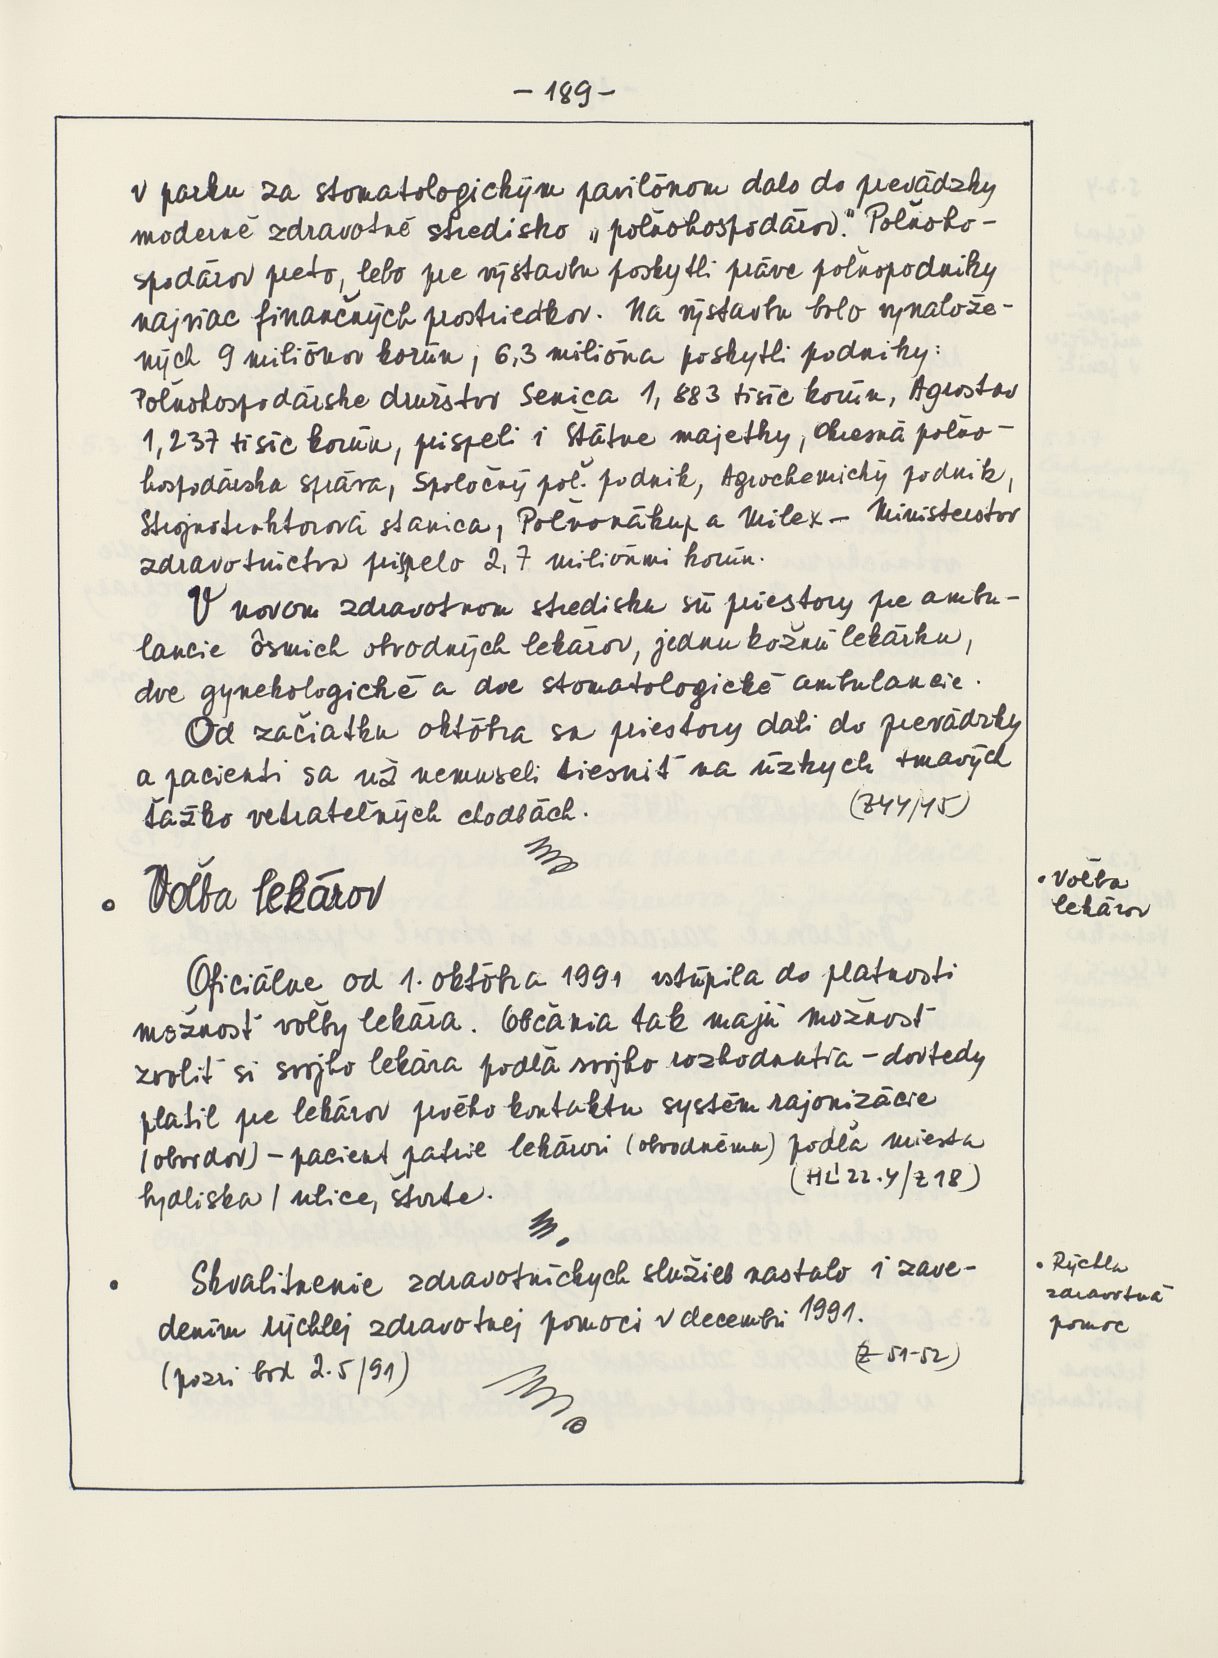 - 189 -
v parku za stomatologickým pavilónom dalo do prevádzky
moderné zdravotné stredisko „poľnohospodárov." Poľnoho-
spodárov preto, lebo pre výstavbu poskytli práve poľnopodniky
najviac finančných prostriedkov. Na výstavbu bolo vynalože-
ných 9 miliónov korún, 6,3 milióna poskytli podniky:
Poľnohospodárske družstvo Senica 1,883 tisíc korún, Agrostav
1,237 tisíc korún, prispeli i Štátne majetky, Okresná poľno-
hospodárska správa, Spoločný poľ. podnik, Agrochemický podnik,
Strojnotraktorová stanica, Poľnonákup a Milex - Ministerstvo
zdravotníctva prispelo 2,7 miliónmi korún.
V novom zdravotnom stredisku sú priestory pre ambu-
lancie ôsmich obvodných lekárov, jednu kožnú lekárku,
dve gynekologické a dve stomatologické ambulancie.
Od začiatku októbra sa priestory dali do prevádzky
a pacienti sa už nemuseli tiesniť na úzkych tmavých
ťažko vetrateľných chodbách. (Z44/45)
• Voľba lekárov
• Voľba
lekárov
Oficiálne od 1. októbra 1991 vstúpila do platnosti
možnosť voľby lekára. Občania tak majú možnosť
zvoliť si svojho lekára podľa svojho rozhodnutia - dovtedy
platil pre lekárov prvého kontaktu systém rajonizácie
(obvodov) - pacient patrie lekárovi (obvodnému) podľa miesta
bydliska / ulice, štvrte. (HĽ 22.4/Z18)
• Skvalitnenie zdravotníckych služieb nastalo i zave-
dením rýchlej zdravotnej pomoci v decembri 1991.
(pozri bod 2.5/91) (Z-51-52)
• Rýchla
zdravotná
pomoc